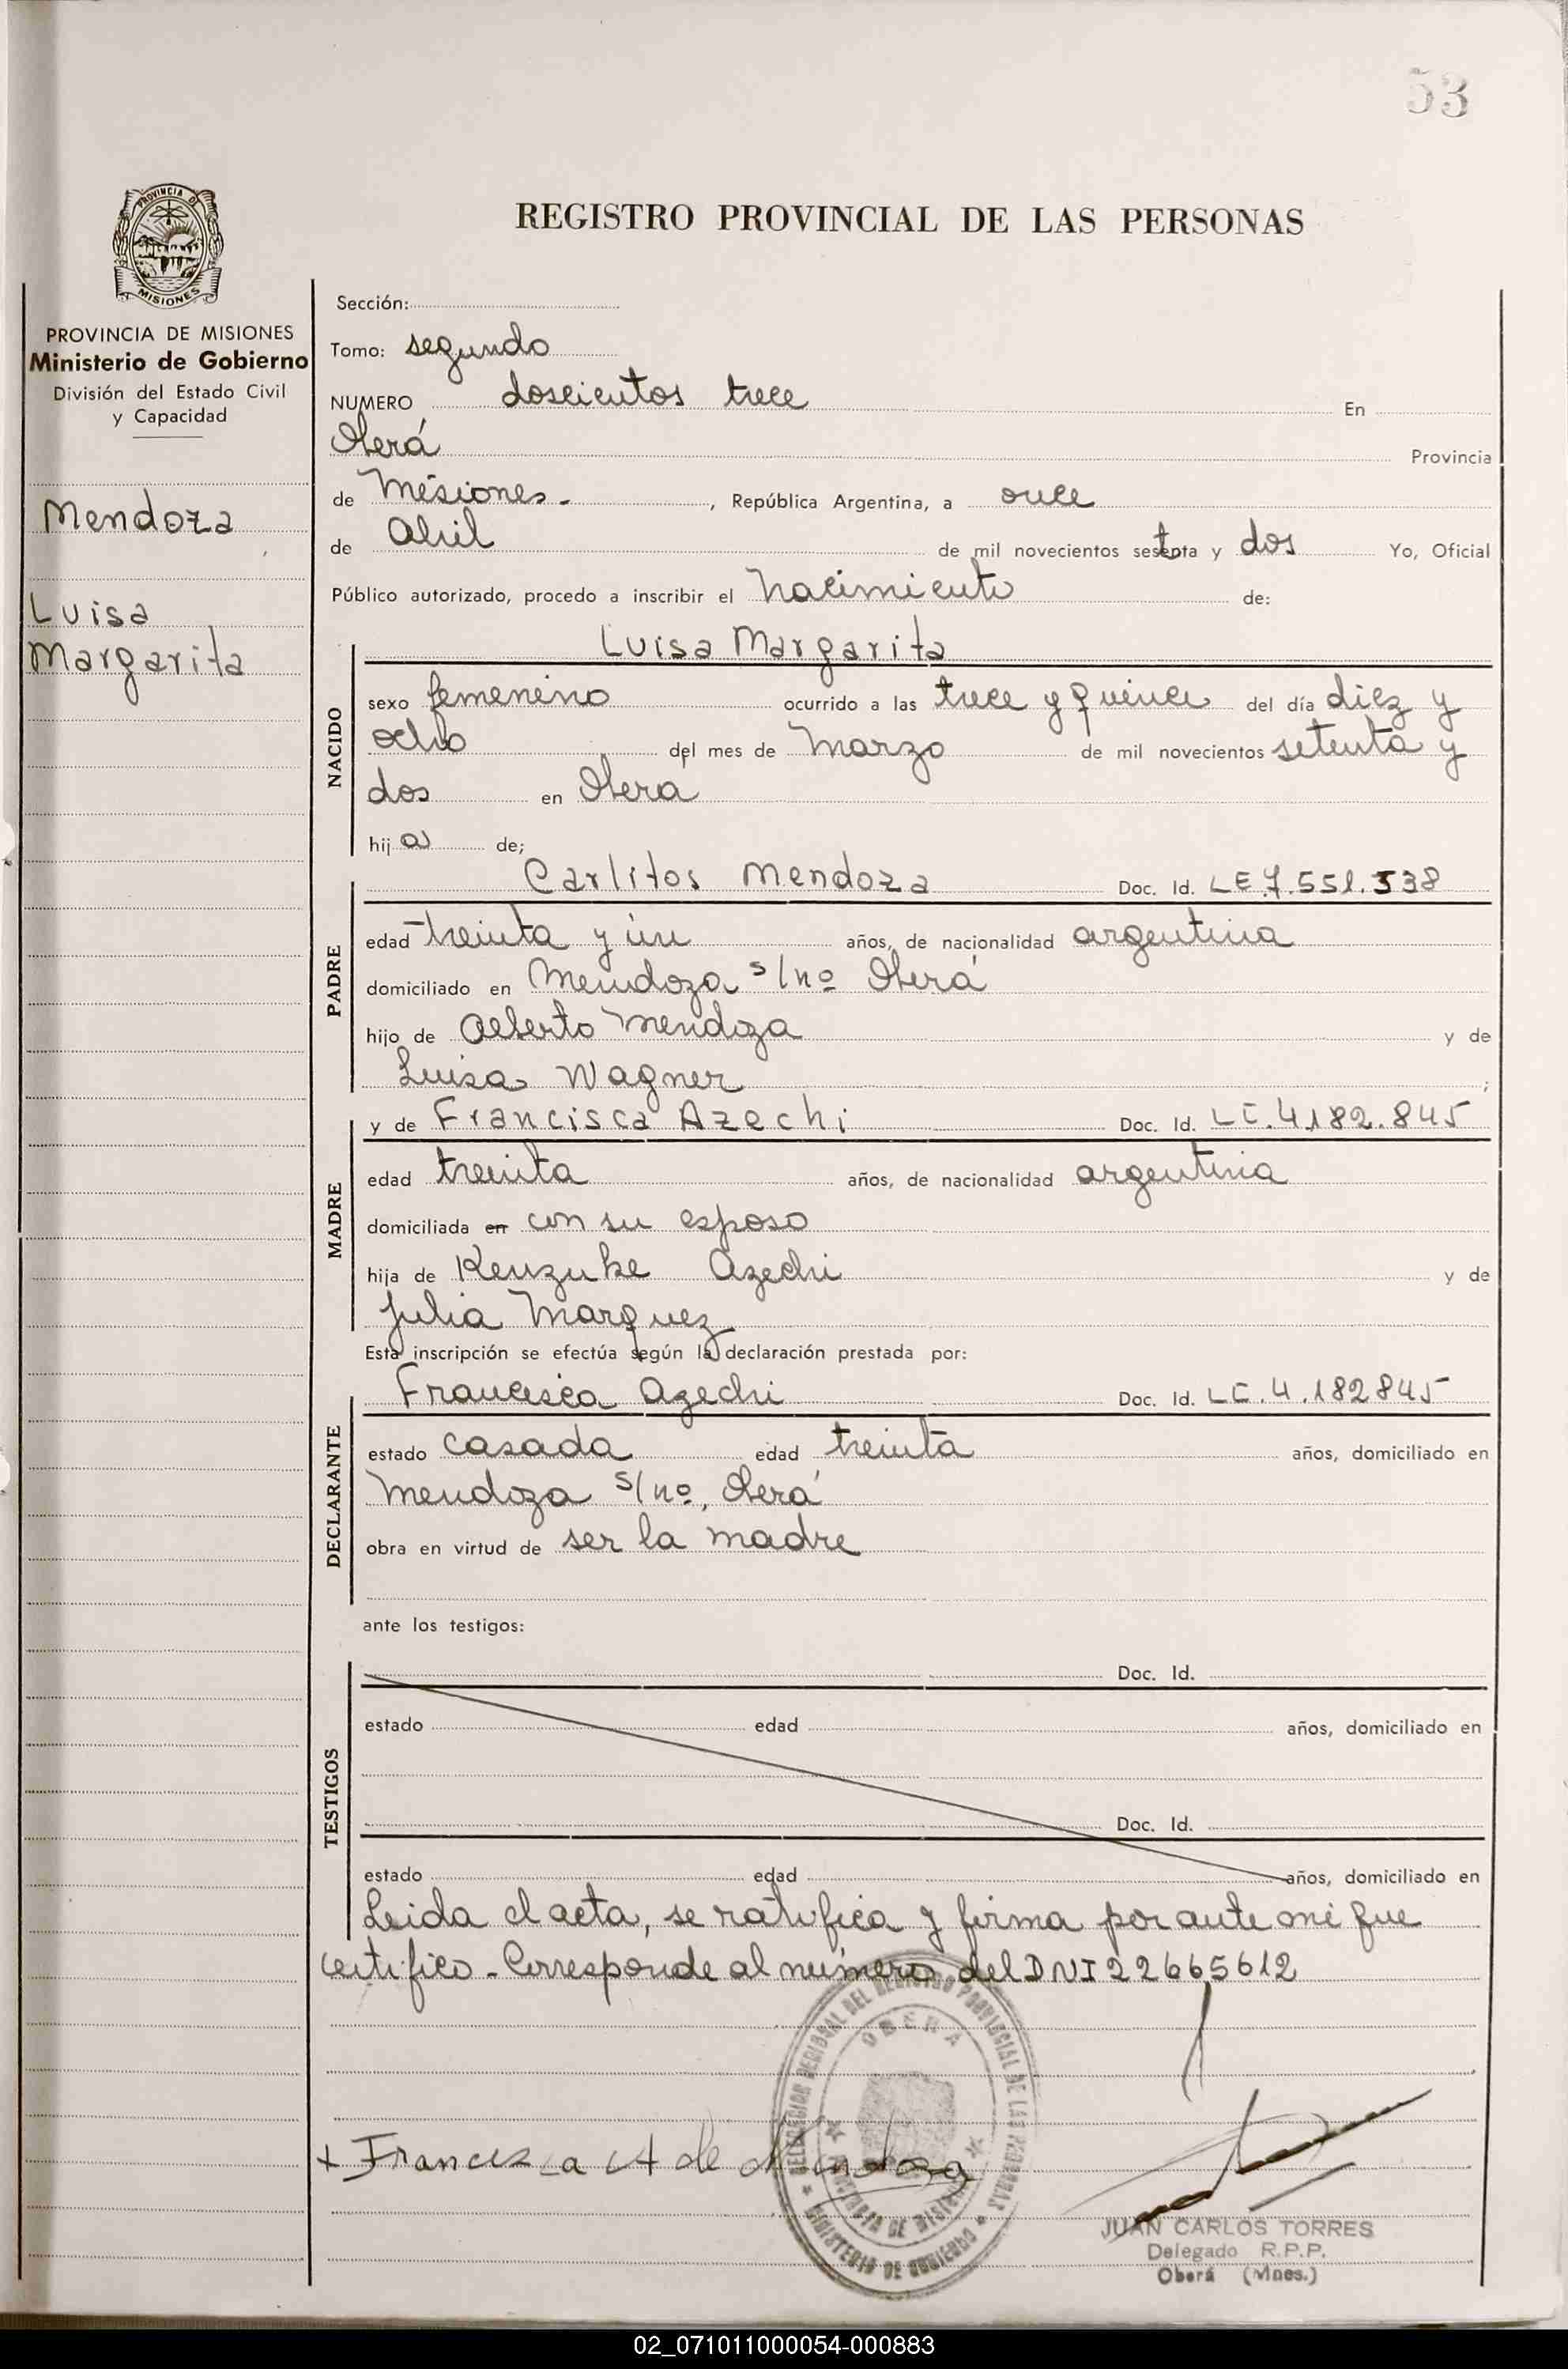 53
PROVINCIA DE
MISIONES
REGISTRO PROVINCIAL DE LAS PERSONAS
PROVINCIA DE MISIONES
Ministerio de Gobierno
División del Estado Civil
y Capacidad
Mendoza
Luisa
Margarita
Sección:
Tomo: segundo
NUMERO doscientos trece En
Oberá Provincia
de Misiones.- , República Argentina, a once
de Abril de mil novecientos setenta y dos Yo, Oficial
Público autorizado, procedo a inscribir el Nacimiento de:
Luisa Margarita
NACIDO
sexo femenino ocurrido a las trece y quince del día diez y
ocho del mes de Marzo de mil novecientos setenta y
dos en Oberá
hija de;
Carlitos Mendoza Doc. Id. LE 7.551.538
PADRE
edad treinta y un años, de nacionalidad argentina
domiciliado en Mendoza s/nº Oberá
hijo de Alberto Mendoza y de
Luisa Wagner ;
y de Francisca Azechi Doc. Id. LC. 4.182.845
MADRE
edad treinta años, de nacionalidad argentina
domiciliada en con su esposo
hija de Kenzuke Azechi y de
Julia Marquez
Esta inscripción se efectúa según la declaración prestada por:
Francisca Azechi Doc. Id. LC. 4.182845
DECLARANTE
estado casada edad treinta años, domiciliado en
Mendoza s/nº, Oberá
obra en virtud de ser la madre
ante los testigos:
Doc. Id.
TESTIGOS
estado edad años, domiciliado en
Doc. Id.
estado edad años, domiciliado en
Leida el acta, se ratifica y firma por ante mi que
certifico - Corresponde al número del DNI 22665612
DELEGACION REGIONAL DEL REGISTRO PROVINCIAL DE LAS PERSONAS
OBERA
PROVINCIA DE MISIONES
MINISTERIO DE GOBIERNO
+ Francisca A de Mendoza
JUAN CARLOS TORRES
Delegado R.P.P.
Oberá (Mnes.)
02_071011000054-000883